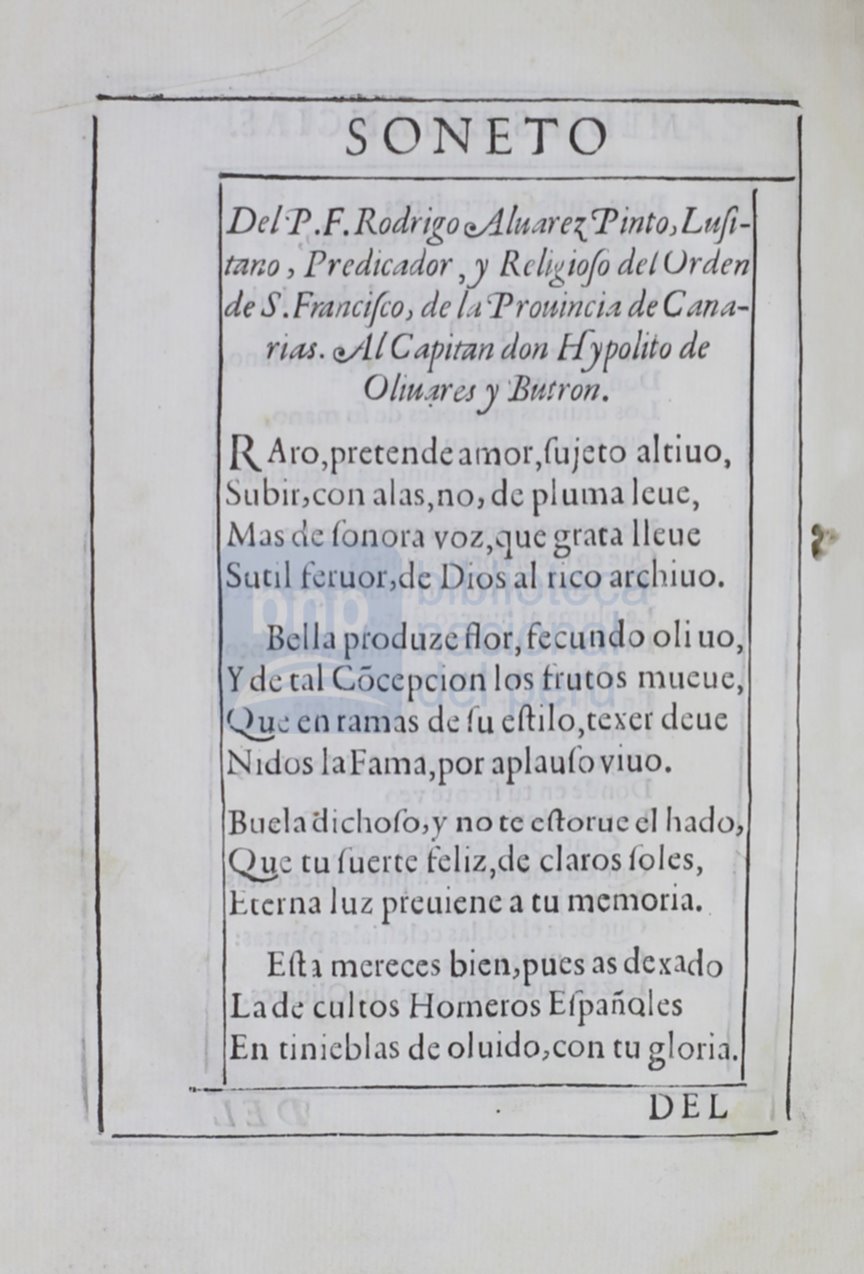 SONETO
Del P. F. Rodrigo Aluarez Pinto, Luſi-
tano, Predicador, y Religioſo del Orden
de S. Franciſco, de la Prouincia de Cana-
rias. Al Capitan don Hypolito de
Oliuares y Butron.
RAro, pretende amor, ſujeto altiuo,
Subir, con alas, no, de pluma leue,
Mas de ſonora voz, que grata lleue
Sutil feruor, de Dios al rico archiuo.
Bella produze flor, fecundo oliuo,
Y de tal Cõcepcion los frutos mueue,
Que en ramas de ſu eſtilo, texer deue
Nidos la Fama, por aplauſo viuo.
Buela dichoſo, y no te eſtorue el hado,
Que tu ſuerte feliz, de claros ſoles,
Eterna luz preuiene a tu memoria.
Eſta mereces bien, pues as dexado
La de cultos Homeros Eſpañoles
En tinieblas de oluido, con tu gloria.
DEL
bnp biblioteca
nacional
del perú